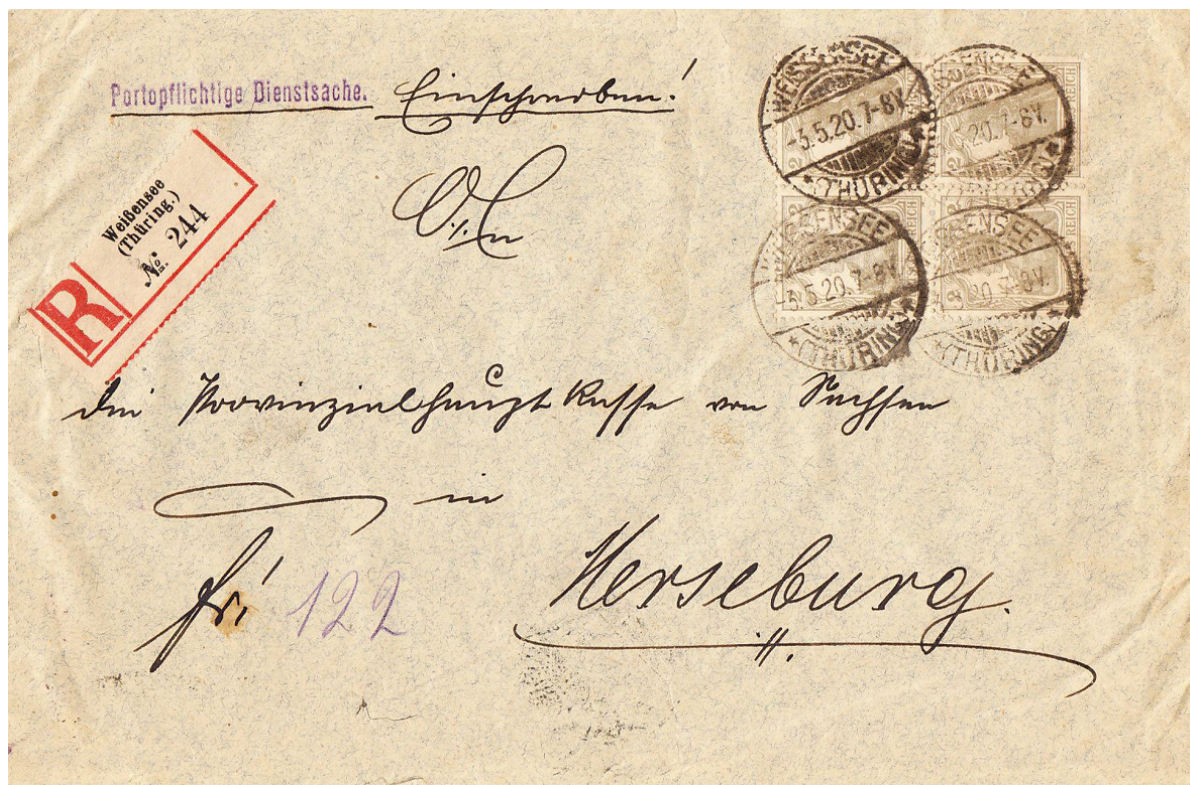 Portopflichtige Dienstsache. Einschreiben!
Weißensee
(Thüring.)
No. 244
R
WEISSENSEE
-3.5.20.7-8V.
*(THÜRING.)*
WEISSENSEE
20.7-8V.
WEISSENSEE
-3.5.20.7-8V.
*(THÜRING.)*
WEISSENSEE
20.7-8V.
*(THÜRING.)
2 2
REICH
2
REICH
die Provinzialhauptkasse von Sachsen
in
Merseburg.
fr. 122